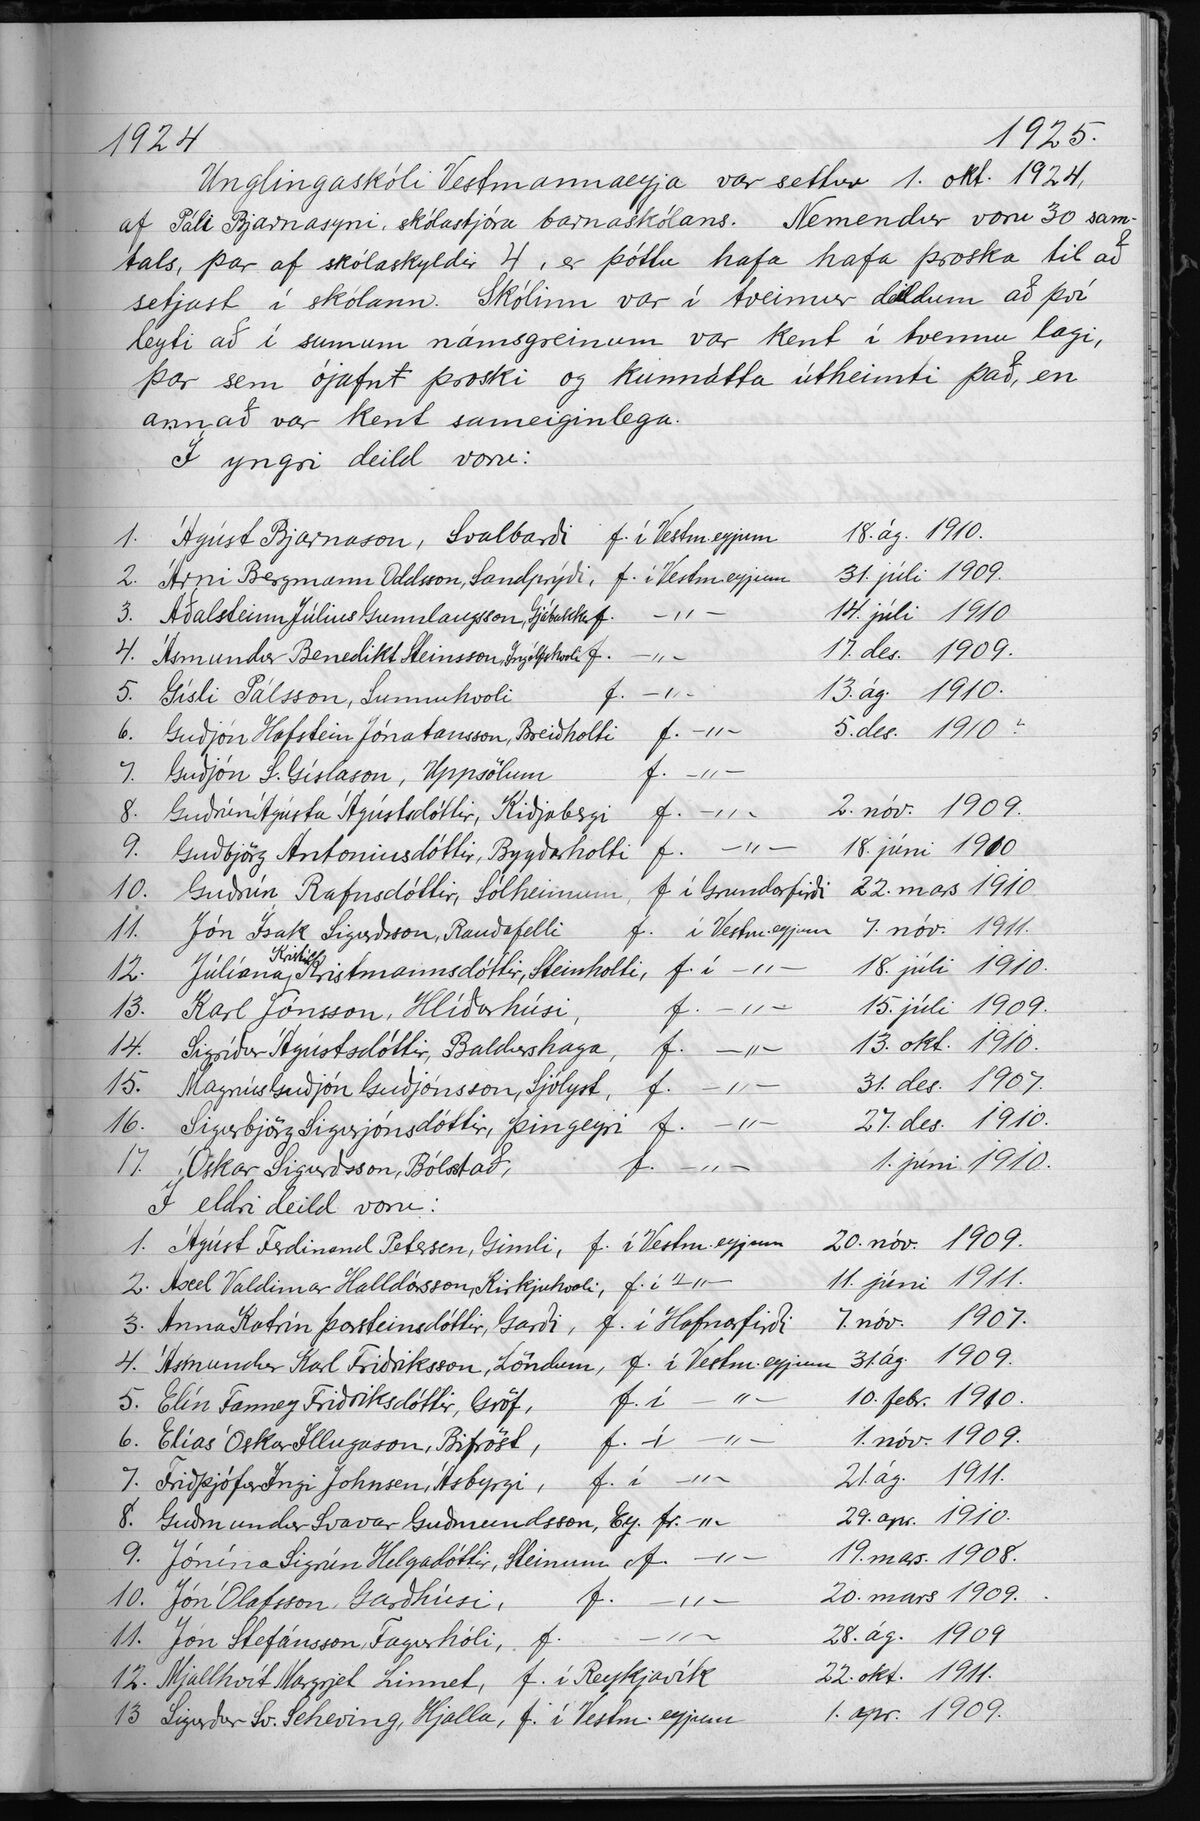 1924 1925.
Unglingaskóli Vestmannaeyja var settur 1. okt. 1924,
af Páli Bjarnasyni, skólastjóra barnaskólans. Nemendur voru 30 sam-
tals, þar af skólaskyldir 4, er þóttu hafa hafa þroska til að
setjast í skólann. Skólinn var í tveimur deildum að því
leyti að í sumum námsgreinum var kent í tvennu lagi,
þar sem ójafnt þroski og kunnátta útheimti það, en
annað var kent sameiginlega.
Í yngri deild voru:
1. Ágúst Bjarnason, Svalbarði f. í Vestm.eyjum 18. ág. 1910.
2. Árni Bergmann Oddsson, Sandprýði, f. í Vestm.eyjum 31. júli 1909.
3. Aðalsteinn Júlíus Gunnlaugsson, Gjábakka f. —„— 14. júli 1910
4. Ásmundur Benedikt Steinsson, Ingólfshvoli f. —„— 17. des. 1909.
5. Gísli Pálsson, Sunnuhvoli f. —„— 13. ág. 1910.
6. Guðjón Hafstein Jónatansson, Breiðholti f. —„— 5. des. 1910.
7. Guðjón S. Gíslason, Uppsölum f. —„—
8. Guðrún Ágústa Ágústsdóttir, Kiðjabergi f. —„— 2. nóv. 1909.
9. Guðbjörg Antoniusdóttir, Byggðarholti f. —„— 18. júni 1910
10. Guðrún Rafnsdóttir, Sólheimum, f. í Grundarfirði 22. mars 1910
11. Jón Ísak Sigurðsson, Rauðafelli f. í Vestm.eyjum 7. nóv. 1911.
12. Júlíana Kristín Kristmannsdóttir, Steinholti, f. í —„— 18. júli 1910.
13. Karl Jónsson, Hlíðarhúsi, f. —„— 15. júli 1909.
14. Sigríður Ágústsdóttir, Baldurshaga, f. —„— 13. okt. 1910.
15. Magnús Guðjón Guðjónsson, Sjólyst, f. —„— 31. des. 1907.
16. Sigurbjörg Sigurjónsdóttir, Þingeyri f. —„— 27. des. 1910.
17. Óskar Sigurðsson, Bólstað, f. —„— 1. júni 1910.
Í eldri deild voru:
1. Ágúst Ferdinand Petersen, Gimli, f. í Vestm.eyjum 20. nóv. 1909.
2. Axel Valdimar Halldórsson, Kirkjuhvoli, f. í —„— 11. júni 1911.
3. Anna Katrín Þorsteinsdóttir, Garði, f. í Hafnarfirði 7. nóv. 1907.
4. Ásmundur Karl Friðriksson, Löndum, f. í Vestm.eyjum 31. ág. 1909.
5. Elín Fanney Friðriksdóttir, Gröf, f. í —„— 10. febr. 1910.
6. Elías Óskar Illugason, Bifröst, f. í —„— 1. nóv. 1909.
7. Friðþjófur Ingi Johnsen, Ásbyrgi, f. í —„— 21. ág. 1911.
8. Guðmundur Svavar Guðmundsson, Ey. fr. —„— 29. apr. 1910.
9. Jónína Sigrún Helgadóttir, Steinum, f. —„— 19. mars. 1908.
10. Jón Ólafsson, Garðhúsi, f. —„— 20. mars 1909.
11. Jón Stefánsson, Fagurhóli, f. —„— 28. ág. 1909
12. Mjallhvít Margrjet Linnet, f. í Reykjavík 22. okt. 1911.
13 Sigurður Sv. Scheving, Hjalla, f. í Vestm.eyjum 1. apr. 1909.